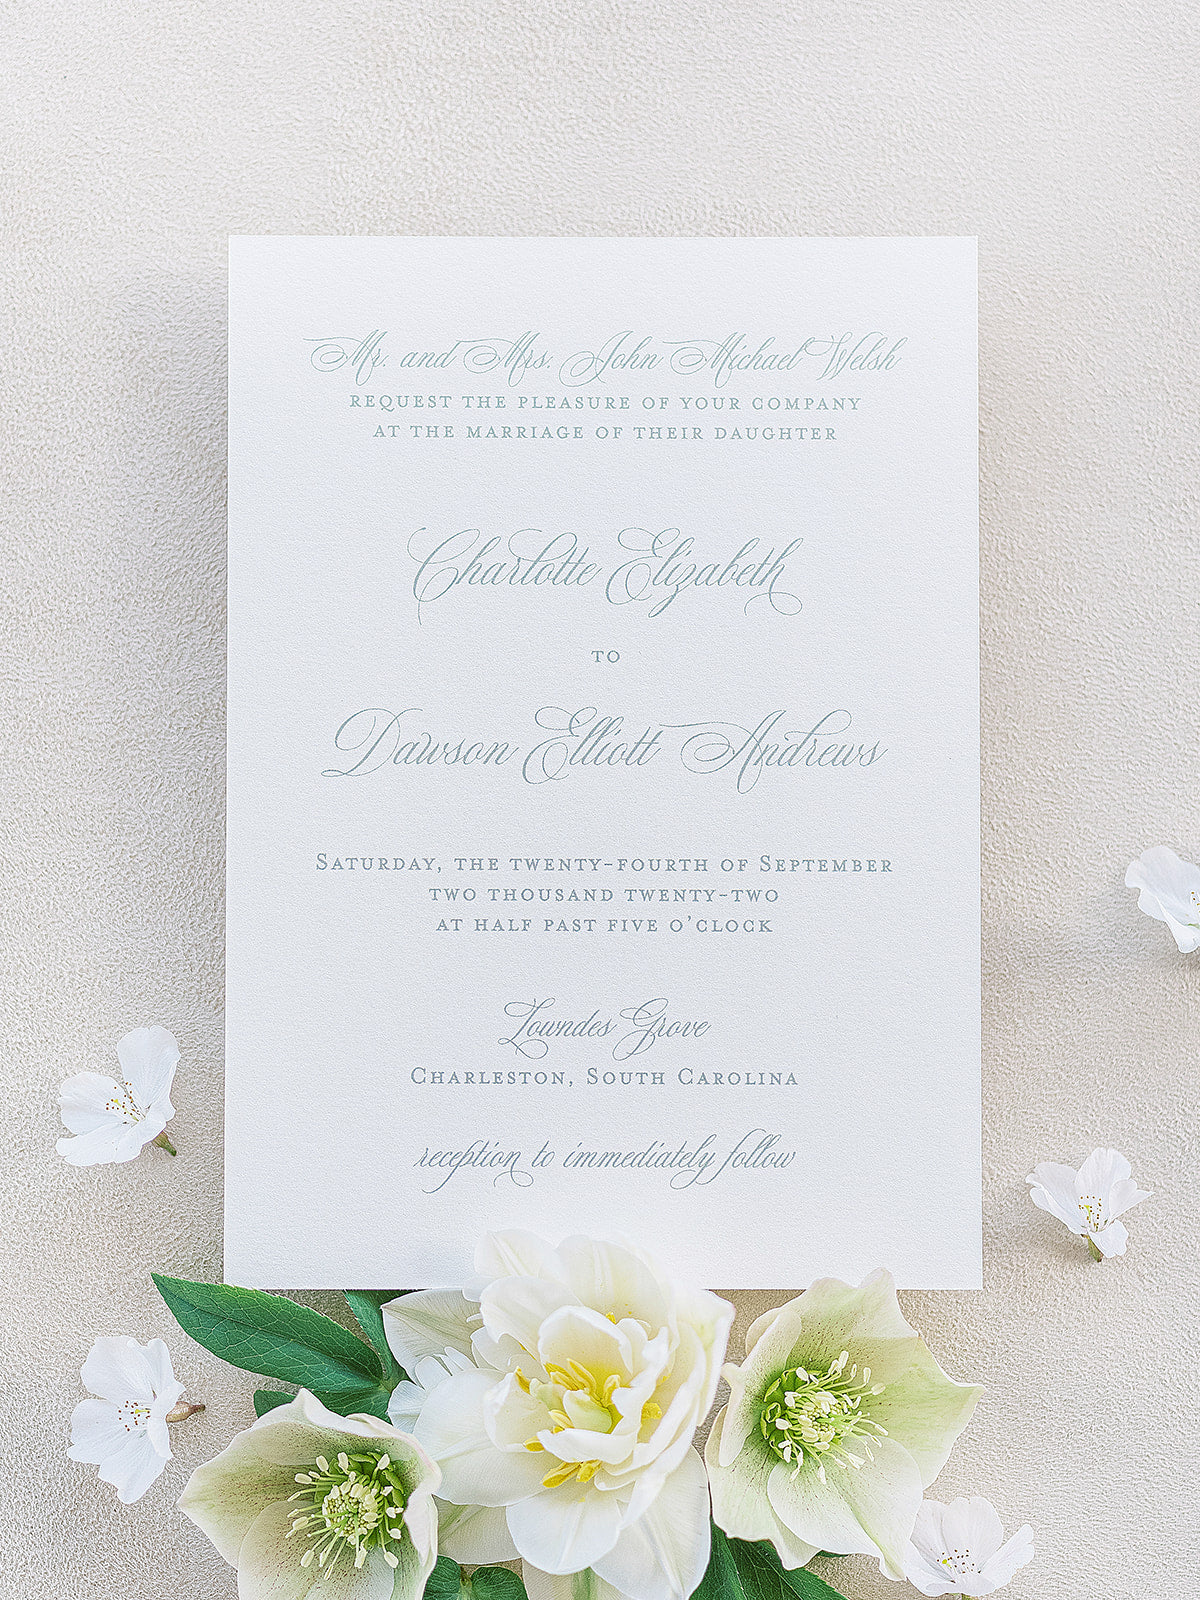 Mr. and Mrs. John Michael Welsh
REQUEST THE PLEASURE OF YOUR COMPANY
AT THE MARRIAGE OF THEIR DAUGHTER
Charlotte Elizabeth
TO
Dawson Elliott Andrews
SATURDAY, THE TWENTY-FOURTH OF SEPTEMBER
TWO THOUSAND TWENTY-TWO
AT HALF PAST FIVE O'CLOCK
Lowndes Grove
CHARLESTON, SOUTH CAROLINA
reception to immediately follow